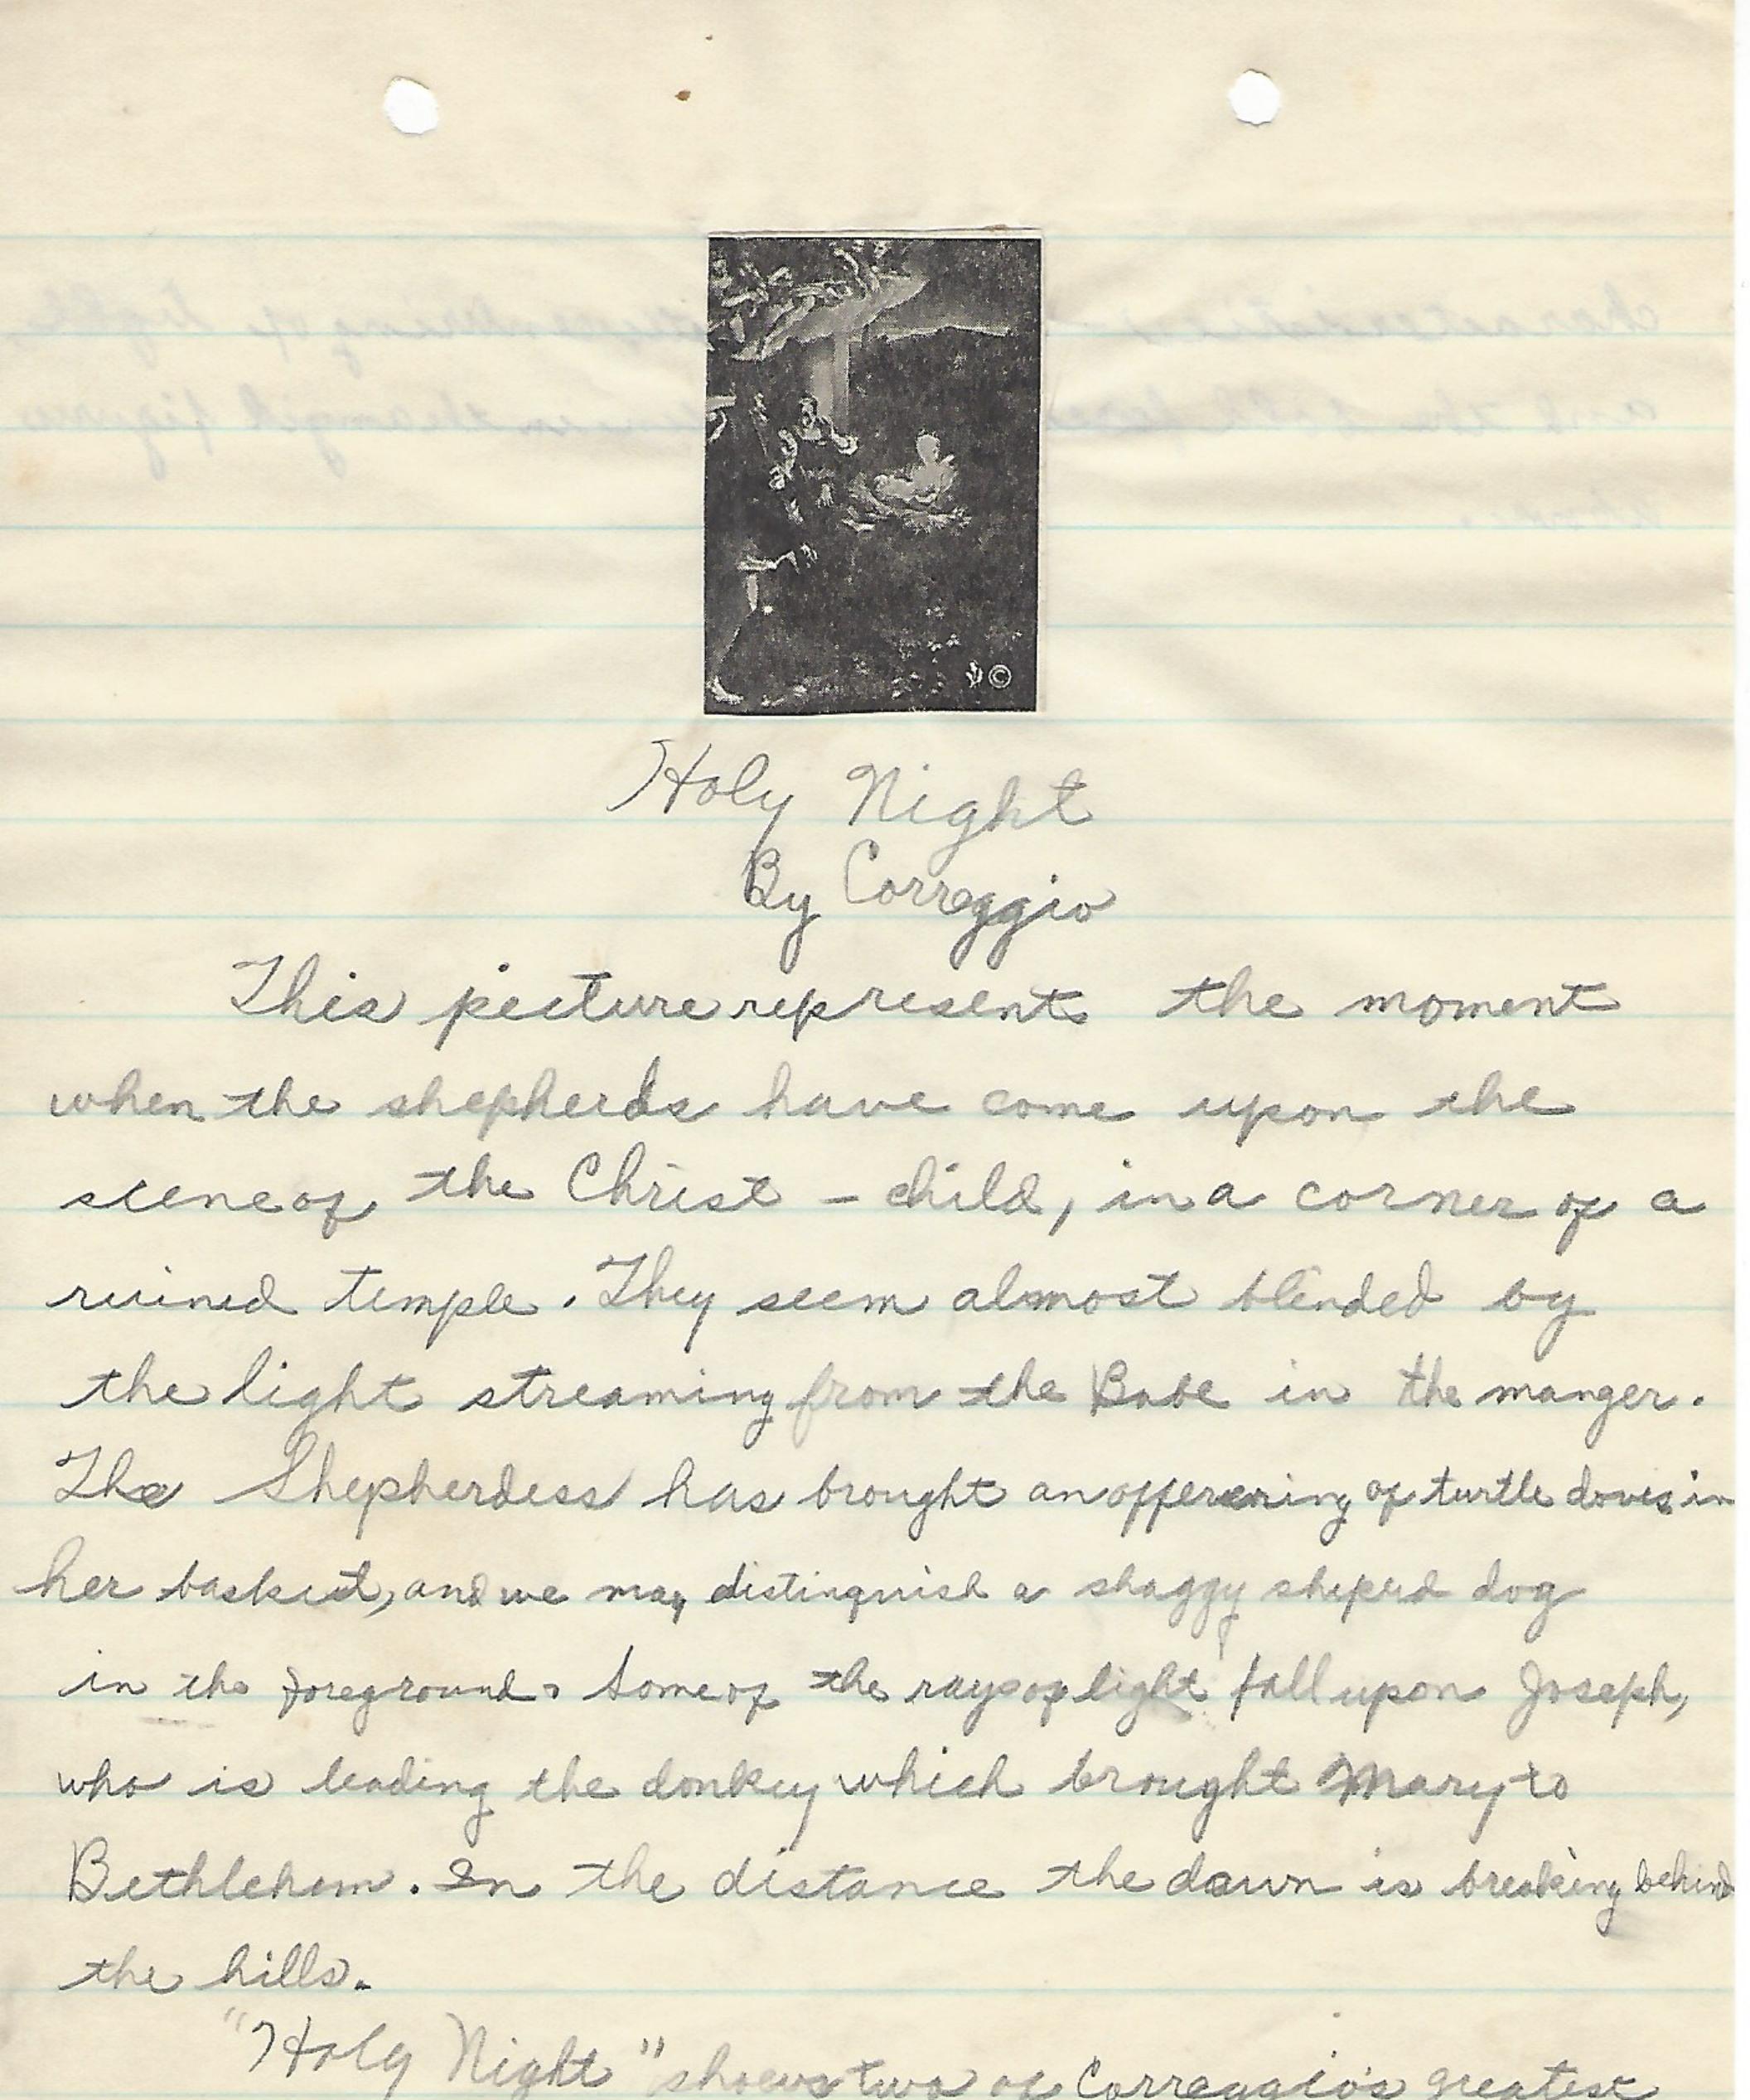 ©
Holy Night
By Correggio
This picture represents the moment
when the shepherds have come upon the
scene of the Christ - child, in a corner of a
ruined temple. They seem almost blinded by
the light streaming from the Babe in the manger.
The Shepherdess has brought an offerening of turtle doves in
her basket, and we may distinguish a shaggy sheperd dog
in the foreground. Some of the rays of light fall upon Joseph,
who is leading the donkey which brought Mary to
Bethlehem. In the distance the dawn is breaking behind
the hills.
"Holy Night" shows two of Correggio's greatest